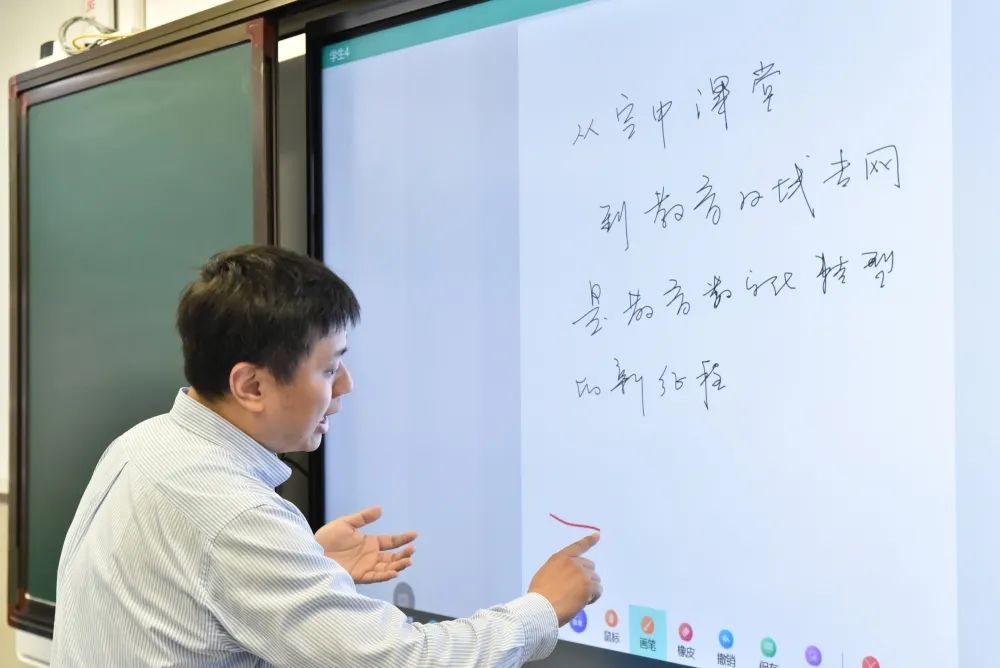 学生4
从空中课堂
到教育城域专网
是教育数字化转型
的新征程
鼠标
画笔
橡皮
撤销
保存